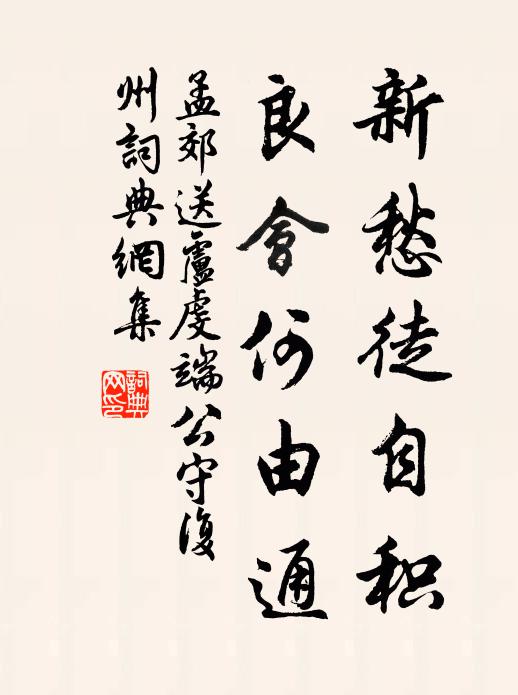 新愁徒自积
良會何由通
孟郊送盧虔端公守復
州詞典網集
詞典
网印